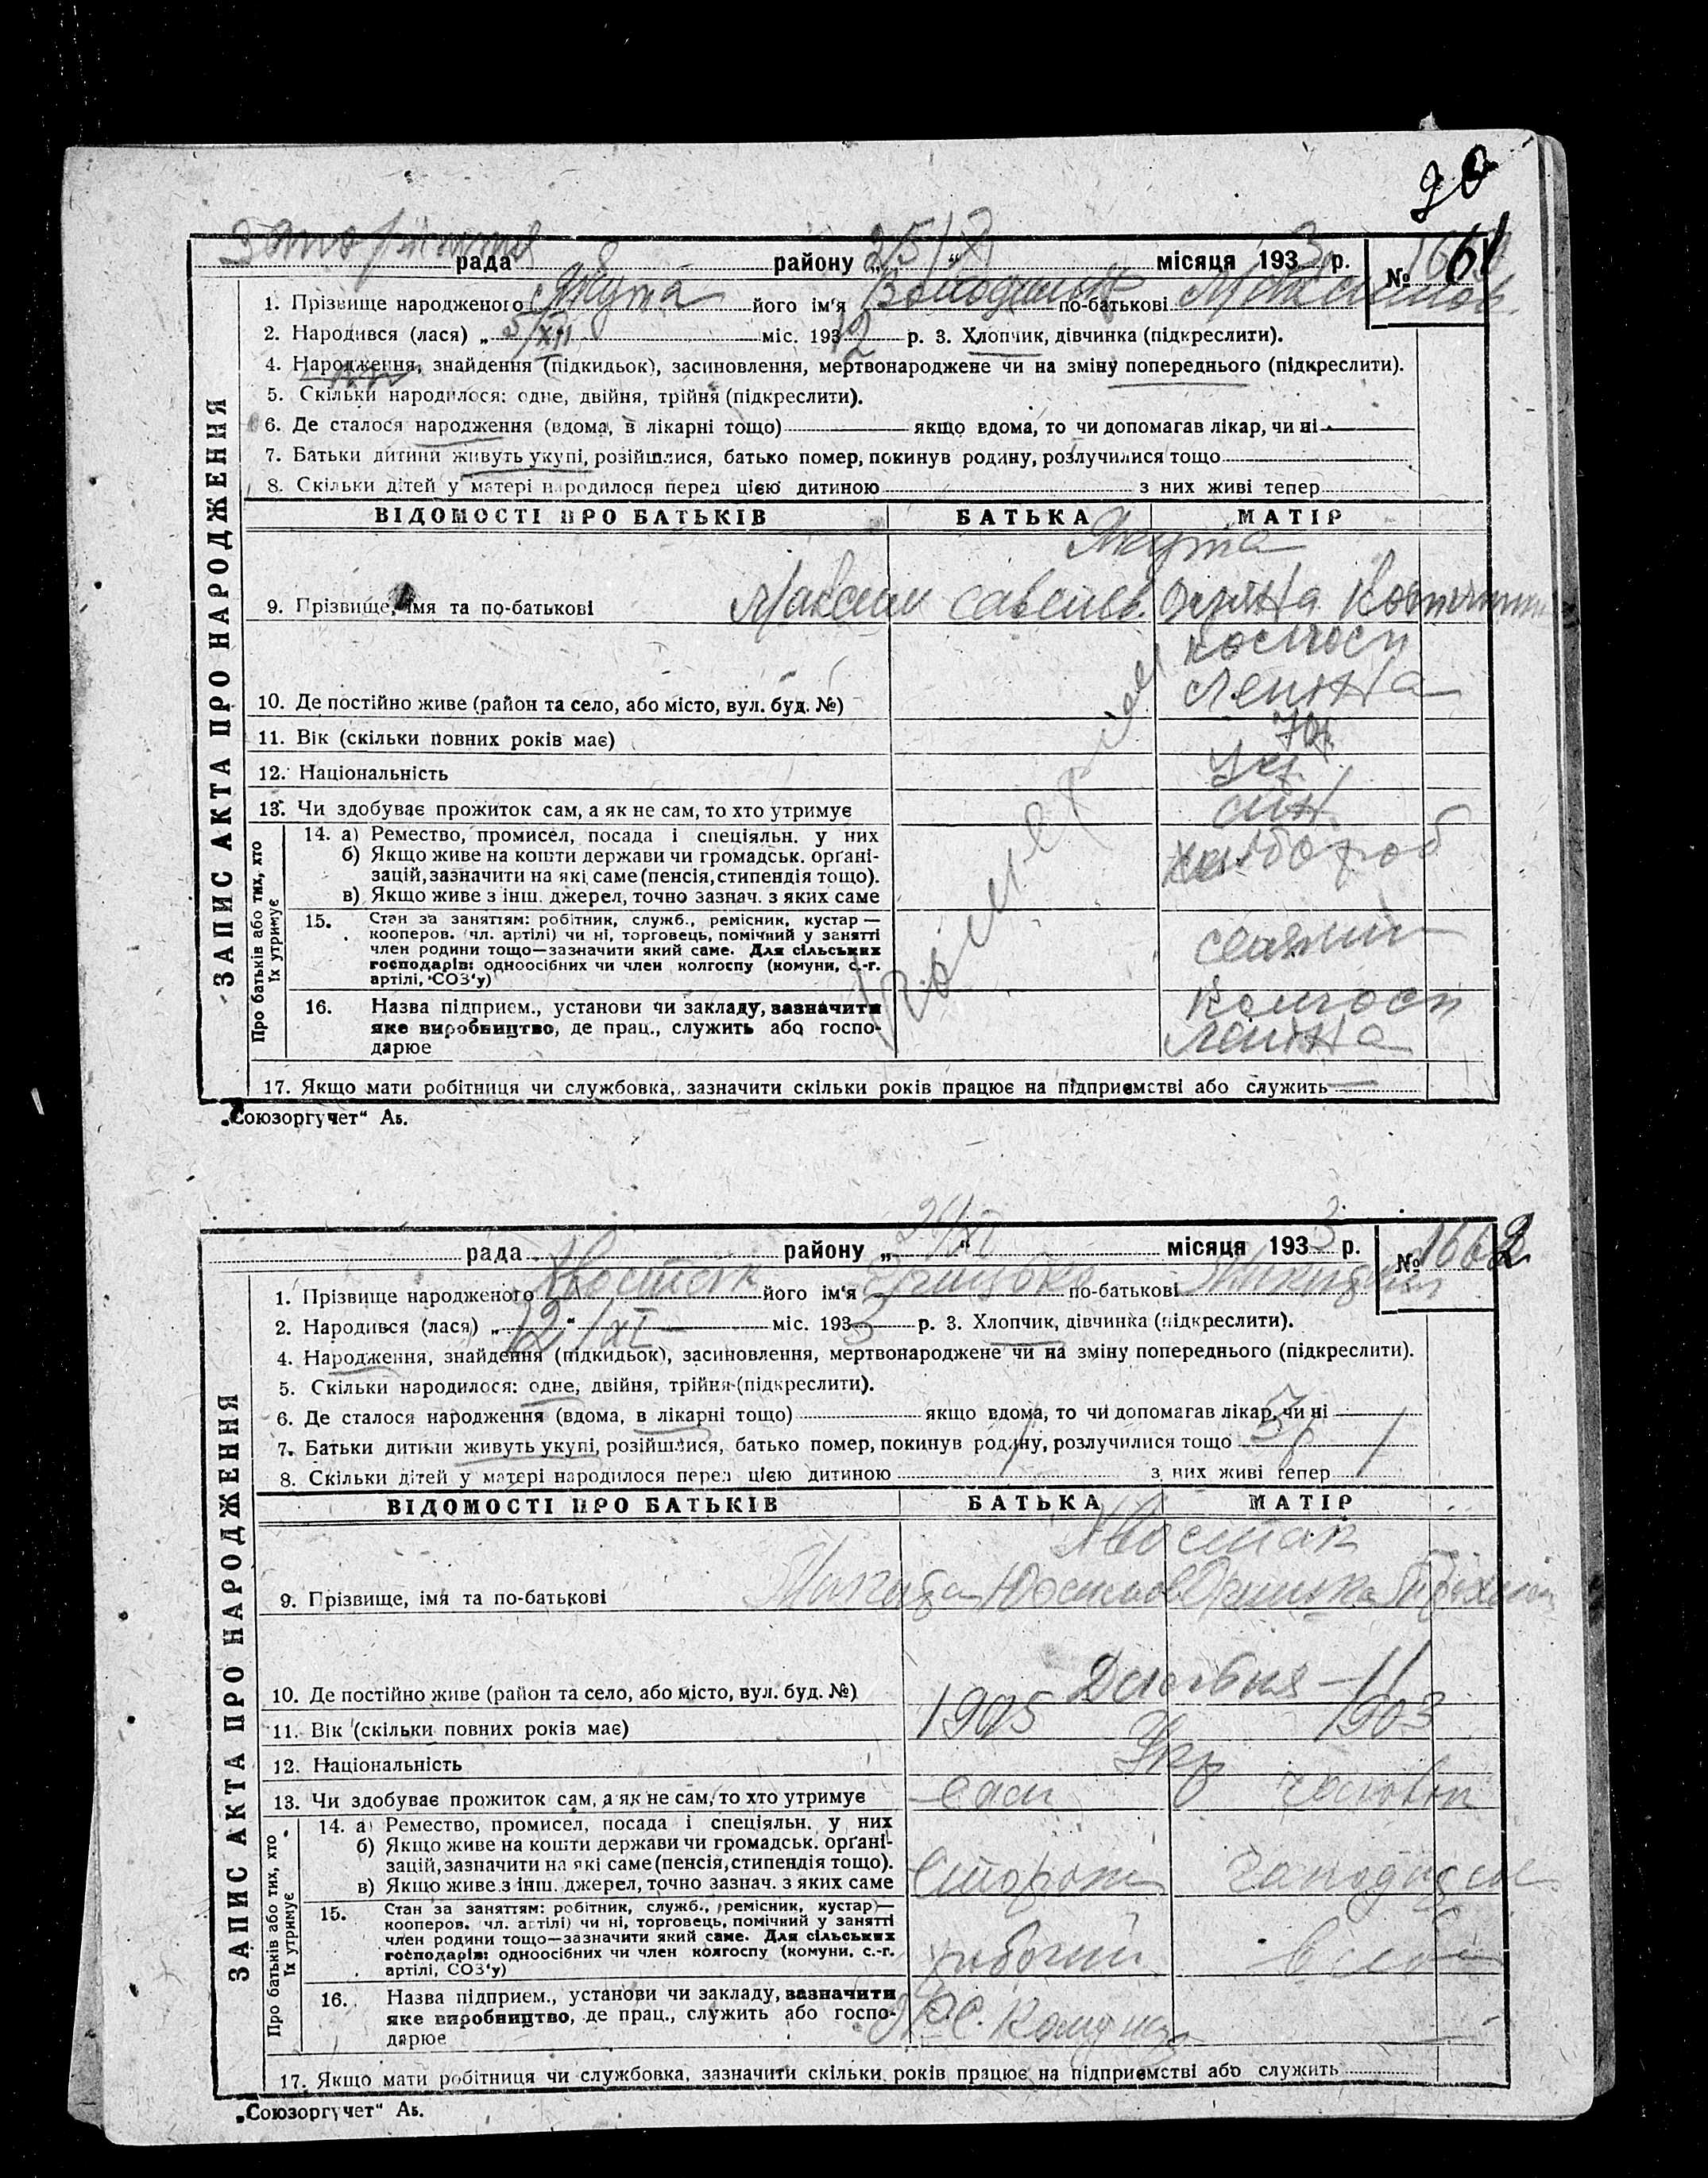 90
рада району „25/X“ місяця 1933 р. № 1661
1. Прізвище народженого Якута його ім'я Володимир по-батькові Максимов.
2. Народився (лася) „ 5/XII міс. 1932 р. 3. Хлопчик, дівчинка (підкреслити).
4. Народження, знайдення (підкидьок), засиновлення, мертвонароджене чи на зміну попереднього (підкреслити).
5. Скільки народилося: одне, двійня, трійня (підкреслити).
6. Де сталося народження (вдома, в лікарні тощо) якщо вдома, то чи допомагав лікар, чи ні
7. Батьки дитини живуть укупі, розійшлися, батько помер, покинув родину, розлучилися тощо
8. Скільки дітей у матері народилося перед цією дитиною з них живі тепер
ЗАПИС АКТА ПРО НАРОДЖЕННЯ
ВІДОМОСТІ ПРО БАТЬКІВ БАТЬКА МАТІР
Якута
9. Прізвище, імя та по-батькові Максим Савелів.
колгосп
10. Де постійно живе (район та село, або місто, вул. буд. №) Леніна
11. Вік (скільки повних років має)
12. Національність Укр
13. Чи здобуває прожиток сам, а як не сам, то хто утримує
Про батьків або тих, хто їх утримує
14. а) Ремество, промисел, посада і спеціяльн. у них
б) Якщо живе на кошти держави чи громадськ. орґані-
зацій, зазначити на які саме (пенсія, стипендія тощо).
в) Якщо живе з інш. джерел, точно зазнач. з яких саме
хлібороб
15. Стан за заняттям: робітник, служб., ремісник, кустар —
кооперов. (чл. артілі) чи ні, торговець, помічний у занятті
член родини тощо—зазначити який саме. Для сільських
господарів: одноосібних чи член колгоспу (комуни, с.-г.
артілі, СОЗ'у)
16. Назва підприєм., установи чи закладу, зазначити
яке виробництво, де прац., служить або госпо-
дарює
колгосп
Леніна
17. Якщо мати робітниця чи службовка, зазначити скільки років працює на підприємстві або служить —
„Союзоргучет“ Аь.
рада району „ “ місяця 1933 р. № 1662
1. Прізвище народженого Хвостак його ім'я Гришко по-батькові
2. Народився (лася) „ 12 “ /XI — міс. 1933 р. 3. Хлопчик, дівчинка (підкреслити).
4. Народження, знайдення (підкидьок), засиновлення, мертвонароджене чи на зміну попереднього (підкреслити).
5. Скільки народилося: одне, двійня, трійня (підкреслити).
6. Де сталося народження (вдома, в лікарні тощо) якщо вдома, то чи допомагав лікар, чи ні
7. Батьки дитини живуть укупі, розійшлися, батько помер, покинув родину, розлучилися тощо
8. Скільки дітей у матері народилося перед цією дитиною з них живі тепер
ЗАПИС АКТА ПРО НАРОДЖЕННЯ
ВІДОМОСТІ ПРО БАТЬКІВ БАТЬКА МАТІР
Хвостак
9. Прізвище, імя та по-батькові
10. Де постійно живе (район та село, або місто, вул. буд. №)
11. Вік (скільки повних років має) 1905 1903
12. Національність Укр
13. Чи здобуває прожиток сам, а як не сам, то хто утримує сам чоловік
Про батьків або тих, хто їх утримує
14. а) Ремество, промисел, посада і спеціяльн. у них
б) Якщо живе на кошти держави чи громадськ. орґані-
зацій, зазначити на які саме (пенсія, стипендія тощо).
в) Якщо живе з інш. джерел, точно зазнач. з яких саме
Сторож
15. Стан за заняттям: робітник, служб., ремісник, кустар)—
кооперов. чл. артілі) чи ні, торговець, помічний у занятті
член родини тощо—зазначити який саме. Для сільських
господарів: одноосібних чи член колгоспу (комуни, с.-г.
артілі, СОЗ'у)
рабочий
16. Назва підприєм., установи чи закладу, зазначити
яке виробництво, де прац., служить або госпо-
дарює
17. Якщо мати робітниця чи службовка, зазначити скільки років працює на підприємстві або служить
„Союзоргучет“ Аь.